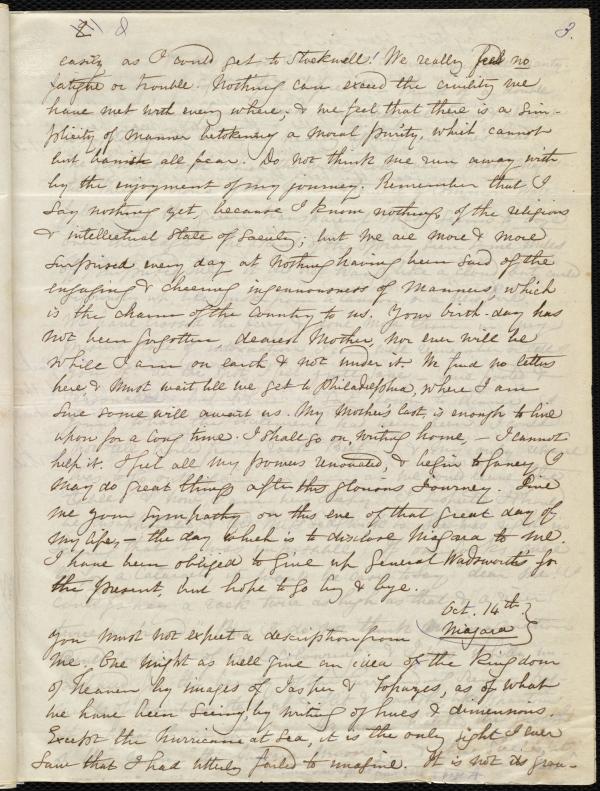 8 3.
easily as I could get to Stockwell! We really feel no
fatigue or trouble. Nothing can exceed the civility we
have met with every where; & we feel that there is a sim-
plicity of manner betokening a moral purity, which cannot
but banish all fear. Do not think me run away with
by the enjoyment of my journey. Remember that I
say nothing yet, because I know nothing, of the religious
& intellectual state of society; but we are more & more
surprised every day at nothing having been said of the
engaging & cheering ingenuousness of manners, which
is the charm of the country to us. Your birth-day has
not been forgotten, dearest Mother, nor ever will be
while I am on earth & not under it. We find no letters
here, & must wait till we get to Philadelphia, where I am
sure some will await us. My Mother's last, is enough to live
upon for a long time. I shall go on, writing home, – I cannot
help it. I feel all my powers renovated, & begin to fancy I
may do great things after this glorious journey. Give
me your sympathy on this eve of that great day of
my life, – the day which is to disclose Niagara to me.
I have been obliged to give up General Wadsworth's for
the present, but hope to go by & bye.
Oct. 14th.
Niagara
You must not expect a description from
me. One might as well give an idea of the Kingdom
of Heaven by images of Jasher & topazes, as of what
we have been seeing, by writing of hues & dimensions.
Except the hurricane at Sea, it is the only sight I ever
saw that I had utterly failed to imagine. It is not its gran-